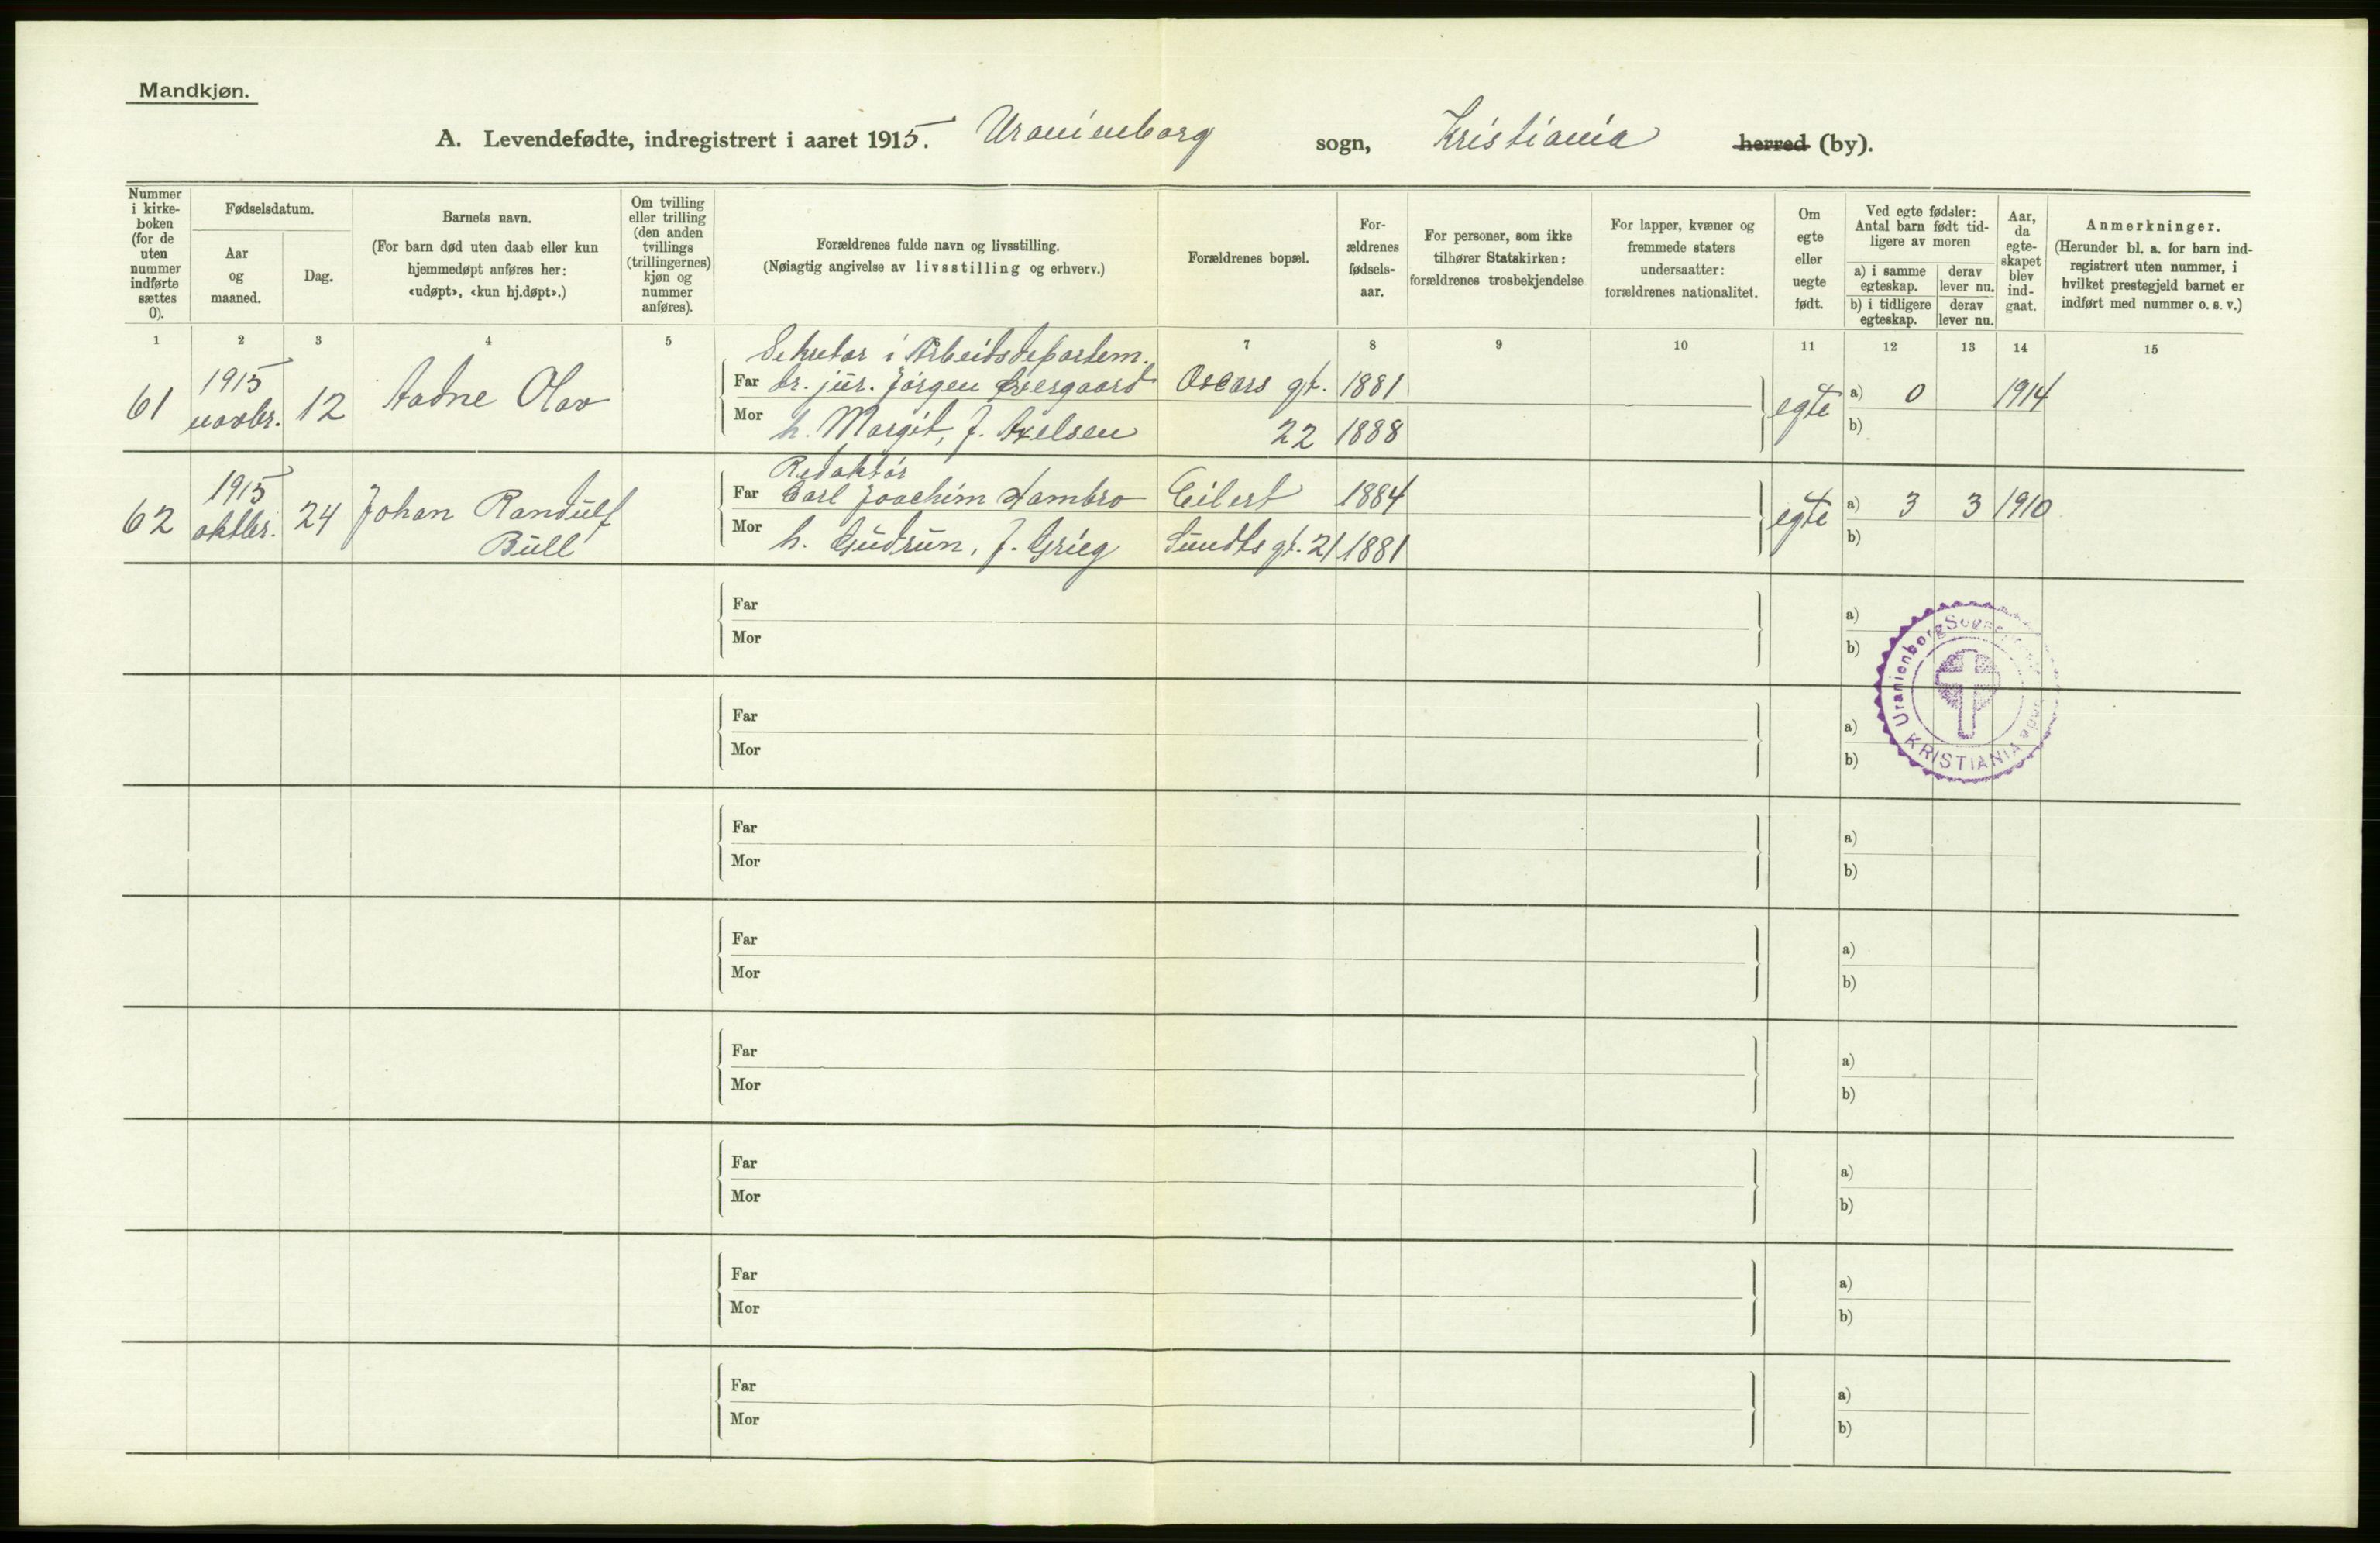 Mandkjøn.
A. Levendefødte, indregistrert i aaret 1915. Uranienborg sogn, Kristiania herred (by).
Nummer i kirke-boken (for de uten nummer indførte sættes 0).
Fødselsdatum.
Aar og maaned.
Dag.
Barnets navn.
(For barn død uten daab eller kun hjemmedøpt anføres her: «udøpt», «kun hj.døpt».)
Om tvilling eller trilling (den anden tvillings (trillingernes) kjøn og nummer anføres).
Forældrenes fulde navn og livsstilling.
(Nøiagtig angivelse av livsstilling og erhverv.)
Forældrenes bopæl.
For-ældrenes fødsels-aar.
For personer, som ikke tilhører Statskirken: forældrenes trosbekjendelse
For lapper, kvæner og fremmede staters undersaatter: forældrenes nationalitet.
Om egte eller uegte født.
Ved egte fødsler: Antal barn født tid-ligere av moren
a) i samme egteskap.
derav lever nu.
b) i tidligere egteskap.
derav lever nu.
Aar, da egte-skapet blev ind-gaat.
Anmerkninger.
(Herunder bl. a. for barn ind-registrert uten nummer, i hvilket prestegjeld barnet er indført med nummer o. s. v.)
1 2 3 4 5 7 8 9 10 11 12 13 14 15
Sekretær i Arbeidsdepartem.
61 1915 novbr. 12 Aadne Olav Far dr. jur. Jørgen Øvergaard Oscars gt. 1881 egte a) 0 1914
Mor h. Margit, f. Axelsen 22 1888 b)
Redaktør
62 1915 oktbr. 24 Johan Randulf Bull Far Carl Joachim Hambro Eilert 1884 egte a) 3 3 1910
Mor h. Gudrun, f. Grieg Sundts gt. 21 1881 b)
Far a)
Mor b)
Uranienborg Sogne
KRISTIANIA
Far a)
Mor b)
Far a)
Mor b)
Far a)
Mor b)
Far a)
Mor b)
Far a)
Mor b)
Far a)
Mor b)
Far a)
Mor b)